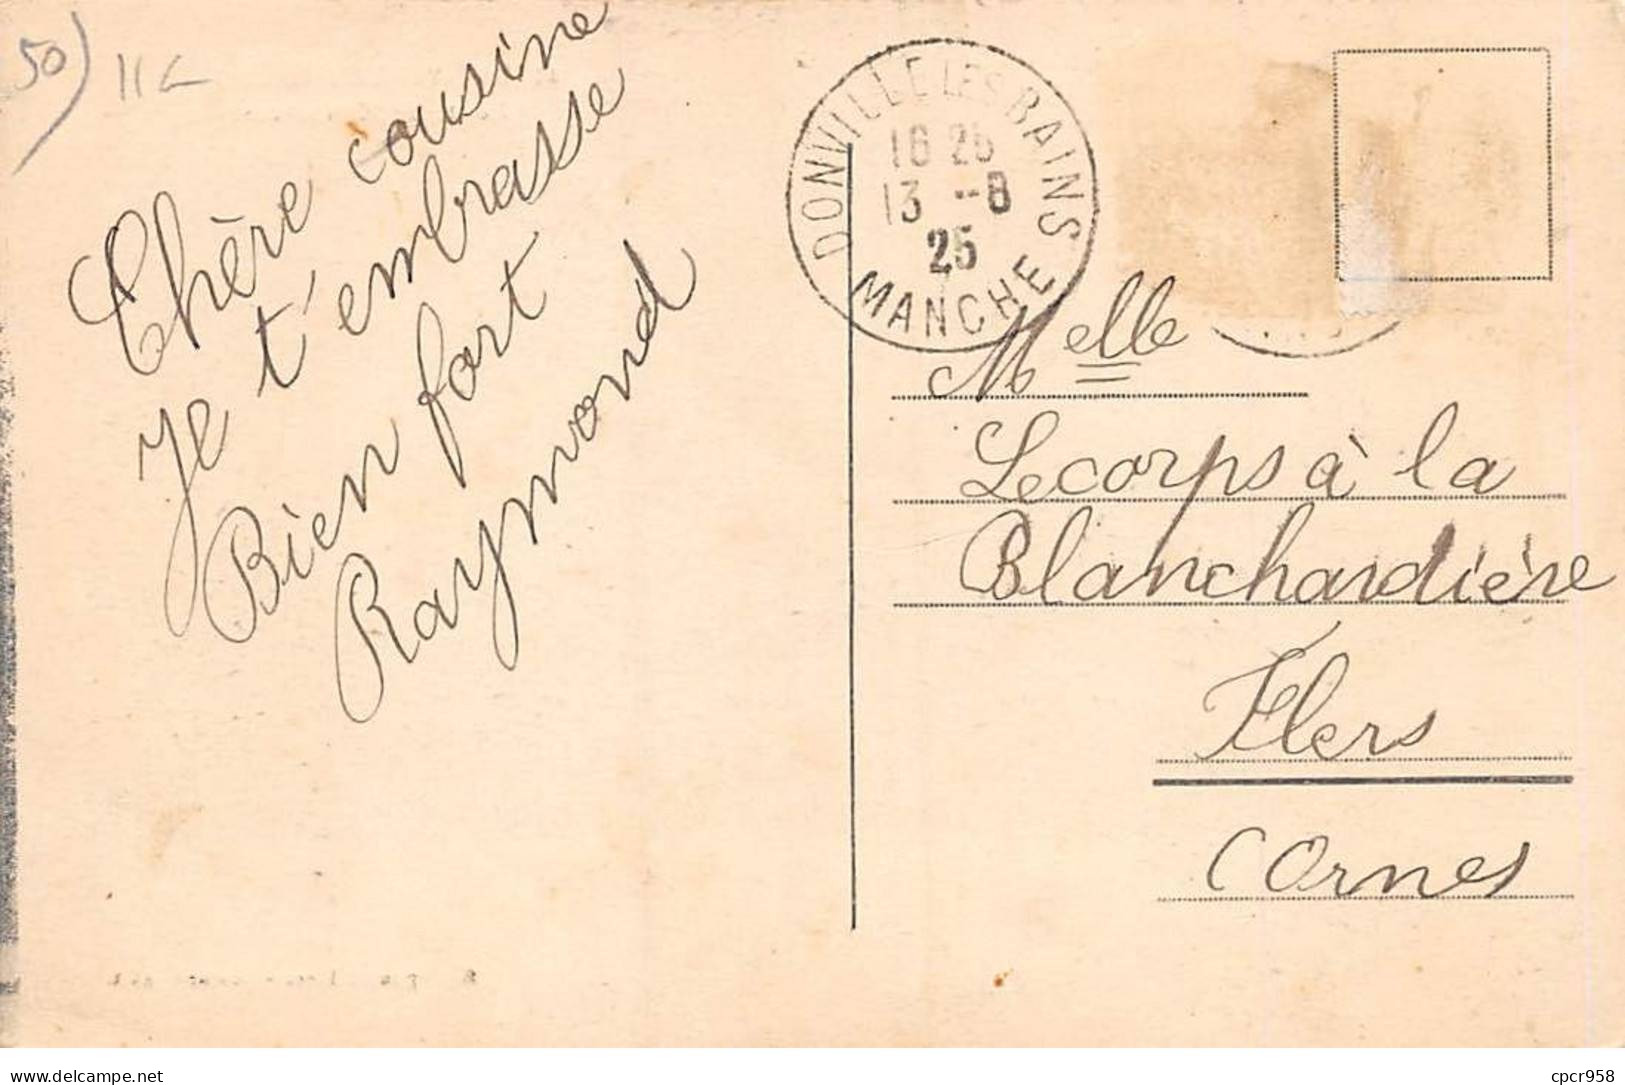 50) 11c
Chère cousine
Je t'embrasse
Bien fort
Raymond
DONVILLE LES BAINS
16 25
13 -- 8
25
MANCHE
Melle
Lecorps à la
Blanchardière
Flers
(Orne)
delcampe.net
cpcr958